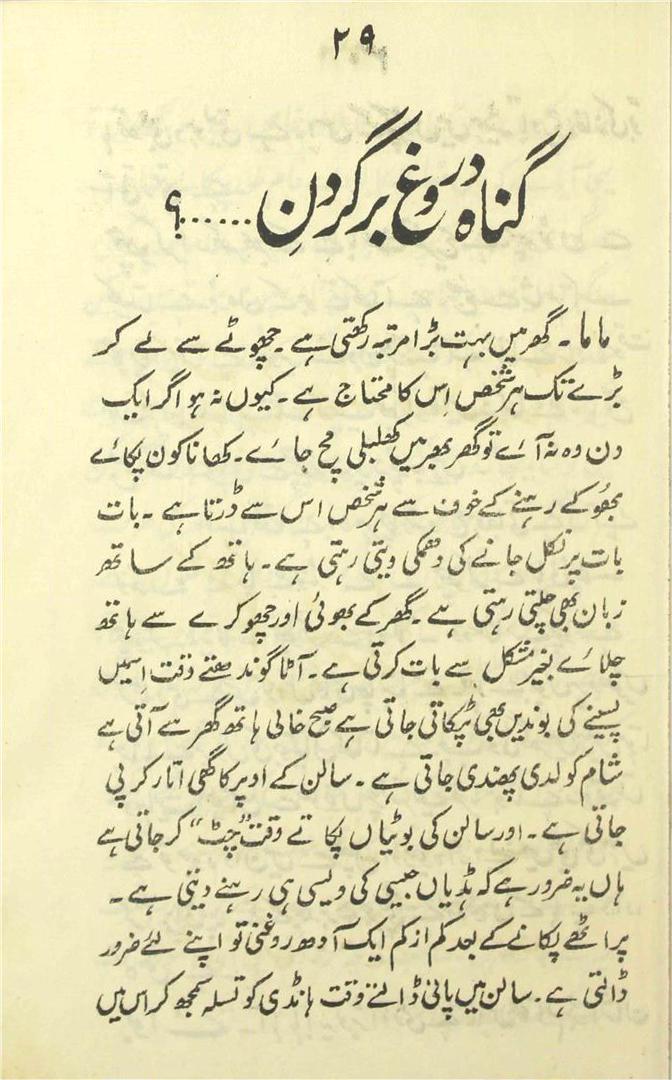 ۲۹
گناہ دروغ بر گردنِ......؟
ماما۔ گھر میں بہت بڑا مرتبہ رکھتی ہے۔ چھوٹے سے لے کر
بڑے تک ہر شخص اِس کا محتاج ہے۔ کیوں نہ ہو اگر ایک
دن وہ نہ آئے تو گھر بھر میں کھلبلی مچ جائے۔ کھانا کون پکائے
بھوکے رہنے کے خوف سے ہر شخص اس سے ڈرتا ہے۔ بات
بات پر نکل جانے کی دھمکی دیتی رہتی ہے۔ ہاتھ کے ساتھ
زبان بھی چلتی رہتی ہے۔ گھر کے بھوئی اور چھوکرے سے ہاتھ
چلائے بغیر مشکل سے بات کرتی ہے۔ آٹا گوندھتے وقت اِسمیں
پسینے کی بوندیں بھی ٹپکاتی جاتی ہے صبح خالی ہاتھ گھر سے آتی ہے
شام کو لدی پھندی جاتی ہے۔ سالن کے اوپر کا گھی اتار کر پی
جاتی ہے۔ اور سالن کی بوٹیاں پکاتے وقت "چٹ" کر جاتی ہے
ہاں یہ ضرور ہے کہ ہڈیاں جیسی کی ویسی ہی رہنے دیتی ہے۔
پراٹھے پکانے کے بعد کم از کم ایک آدھ روغنی تو اپنے لئے ضرور
ڈالتی ہے۔ سالن میں پانی ڈالتے وقت ہانڈی کو تسلہ سمجھ کر اس میں